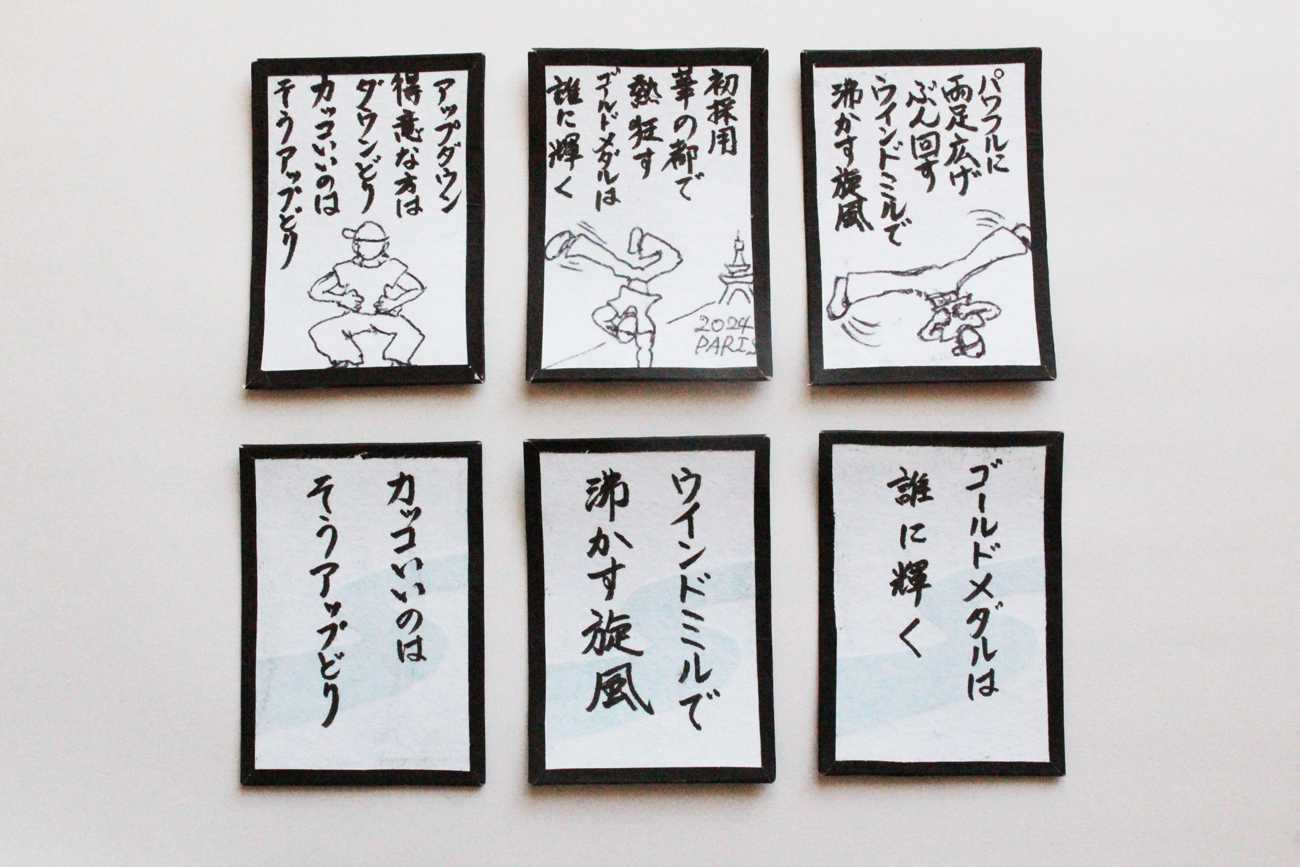 アップダウン
得意な方は
ダウンどり
カッコいいのは
そうアップどり
初採用
華の都で
熱狂す
ゴールドメダルは
誰に輝く
2024
PARIS
パワフルに
両足広げ
ぶん回す
ウインドミルで
沸かす旋風
カッコいいのは
そうアップどり
ウインドミルで
沸かす旋風
ゴールドメダルは
誰に輝く